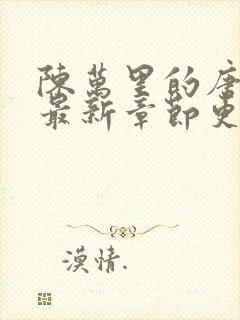 陳萬里的唐
最新章節更
漠情.